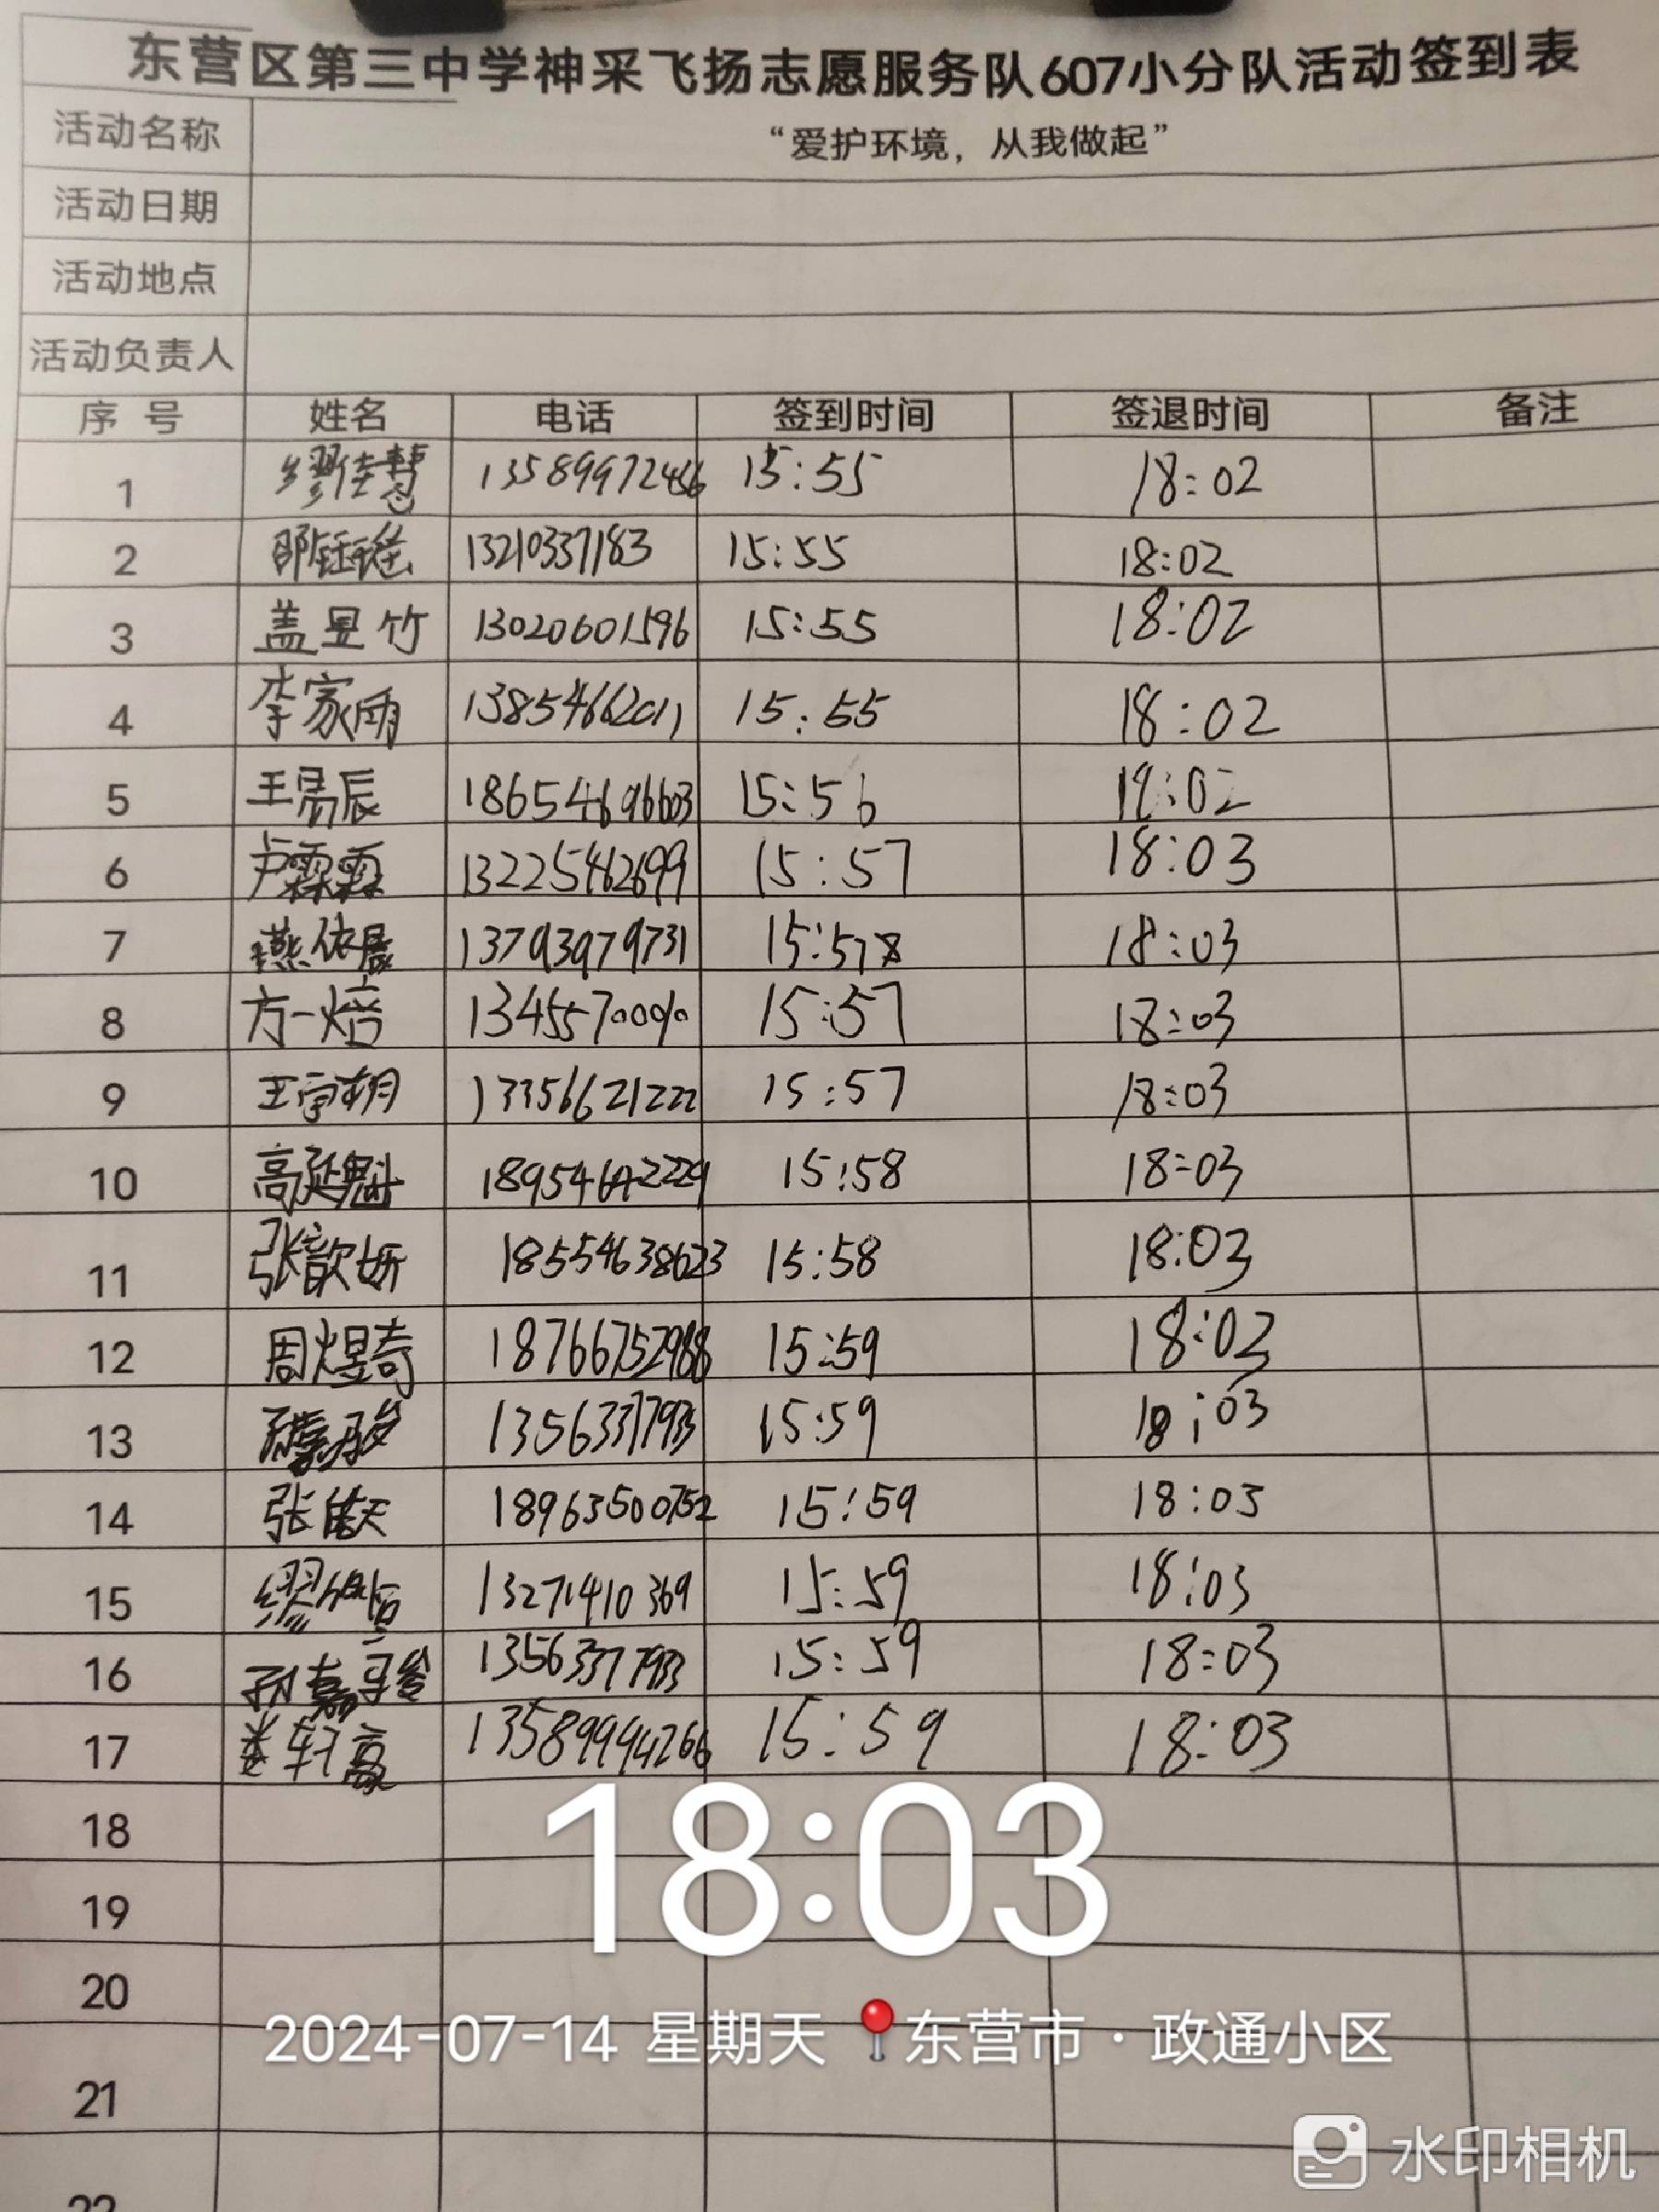 东营区第三中学神采飞扬志愿服务队607小分队活动签到表
活动名称 “爱护环境，从我做起”
活动日期
活动地点
活动负责人
序 号 姓名 电话 签到时间 签退时间 备注
1 缪佳慧 13589972466 15:55 18:02
2 邵钰瑶 13210337183 15:55 18:02
3 盖昱竹 13020601596 15:55 18:02
4 李家雨 13854662011 15:55 18:02
5 王昜辰 18654696603 15:56 18:02
6 卢霖霖 13225462699 15:57 18:03
7 燕依晨 13793979731 15:57 18:03
8 方一焙 15:57 18:03
9 王宇朝 13356621222 15:57 18:03
10 高延魁 15:58 18:03
11 张歆妍 18554638623 15:58 18:03
12 周煜奇 18766752988 15:59 18:03
13 13563377933 15:59 18:03
14 张皓天 18963500752 15:59 18:03
15 缪 13271410369 15:59 18:03
16 孙嘉骏 13563377933 15:59 18:03
17 娄轩豪 13589994266 15:59 18:03
18
19
20
21
22
18:03
2024-07-14 星期天 东营市·政通小区
水印相机